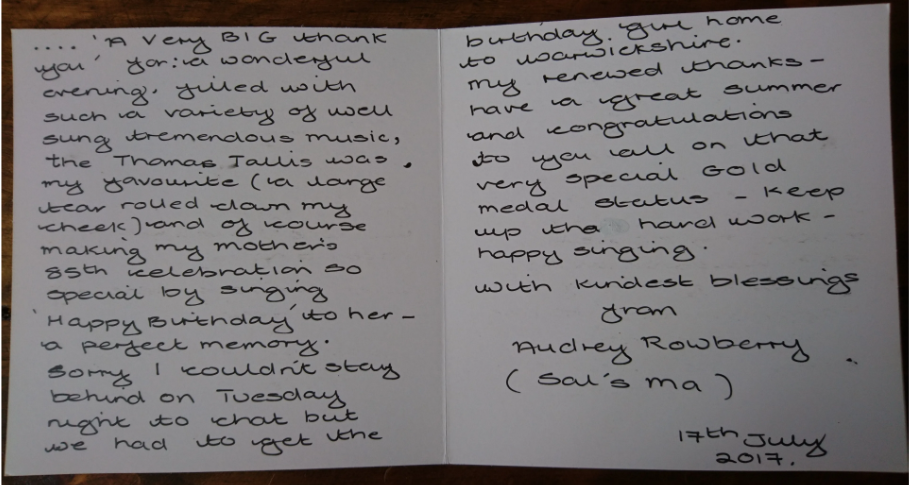 .... 'A Very BIG thank
you' for: a wonderful
evening. filled with
such a variety of well
sung tremendous music,
the Thomas Tallis was
my favourite (a large
tear rolled down my
cheek) and of course
making my mother's
85th celebration so
special by singing
'Happy Birthday' to her –
a perfect memory.
Sorry I couldn't stay
behind on Tuesday
night to chat but
we had to get the
birthday girl home
to Warwickshire.
my renewed thanks –
have a great summer
and congratulations
to you all on that
very special Gold
medal status – Keep
up the hard work –
happy singing.
with kindest blessings
from
Audrey Rowberry
(Sal's ma)
17th July
2017.